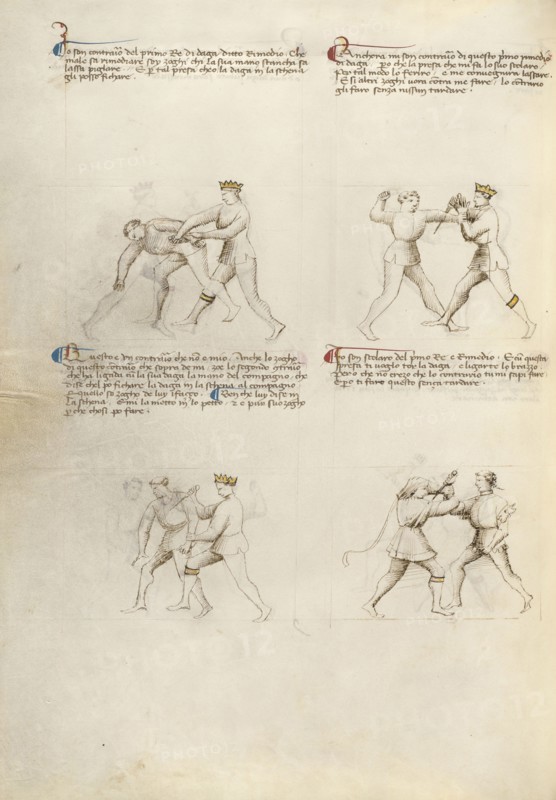 Io son contrario del primo Re di daga ditto Rimedio. Che
male sa rimediare soy zoghi chi la sua mano stancha sa
lassa pigliare. E per tal presa cheo la daga in la schena
gli posso fichare.
Anchora mi son contrario di questo primo
di daga po che la presa che mi fa lo suo scolaro
Per tal modo lo ferirò e me convegnira lassare.
E si altri zoghi vora contra me fare lo contrario
gli faro senza nissun tardare.
Questo e un contrario che non e mio. Anche lo zogho
di questo contrario che sopra de mi. zoe lo segondo
che ha ligada cum la sua daga la mano del compagno. che
dise chel po fichare la daga in la schena al compagno
quello so zogho de luy i fazo. Ben che luy dise in
La schena. E mi la metto in lo petto. e e piu suo zogho
che chosi po fare.
Io son scolaro del primo Re e Rimedio. E cum questa
presa ti voglio tor la daga. e ligarte lo brazzo.
Pero che non crezo che lo contrario tu mi sapi fare
e po ti faro questo senza tardare.
PHOTO12